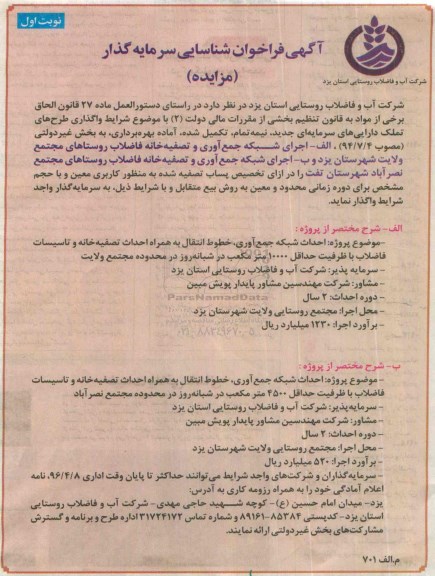 نوبت اول
آگهی فراخوان شناسایی سرمایه گذار
(مزایده)
شرکت آب و فاضلاب روستایی استان یزد
شرکت آب و فاضلاب روستایی استان یزد در نظر دارد در راستای دستورالعمل ماده ۲۷ قانون الحاق
برخی از مواد به قانون تنظیم بخشی از مقررات مالی دولت (۲) با موضوع شرایط واگذاری طرح‌های
تملک دارایی‌های سرمایه‌ای جدید، نیمه‌تمام، تکمیل شده، آماده بهره‌برداری، به بخش غیردولتی
(مصوب ۹۴/۷/۴) ، الف- اجرای شبکه جمع‌آوری و تصفیه‌خانه فاضلاب روستاهای مجتمع
ولایت شهرستان یزد و ب- اجرای شبکه جمع‌آوری و تصفیه‌خانه فاضلاب روستاهای مجتمع
نصرآباد شهرستان تفت را در ازای تخصیص پساب تصفیه شده به منظور کاربری معین و با حجم
مشخص برای دوره زمانی محدود و معین به روش بیع متقابل و با شرایط ذیل، به سرمایه‌گذار واجد
شرایط واگذار نماید.
الف- شرح مختصر از پروژه :
-موضوع پروژه: احداث شبکه جمع‌آوری، خطوط انتقال به همراه احداث تصفیه‌خانه و تاسیسات
فاضلاب با ظرفیت حداقل ۱۰۰۰۰ متر مکعب در شبانه‌روز در محدوده مجتمع ولایت
- سرمایه پذیر: شرکت آب و فاضلاب روستایی استان یزد
- مشاور: شرکت مهندسین مشاور پایدار پویش مبین
- دوره احداث: ۲ سال
- محل اجرا: مجتمع روستایی ولایت شهرستان یزد
- برآورد اجرا: ۱۲۳۰ میلیارد ریال
ParsNamadData
۰۲۱-۸۸۳۴۹۶۷۰-۵
ب- شرح مختصر از پروژه :
- موضوع پروژه: احداث شبکه جمع‌آوری، خطوط انتقال به همراه احداث تصفیه‌خانه و تاسیسات
فاضلاب با ظرفیت حداقل ۴۵۰۰ متر مکعب در شبانه‌روز در محدوده مجتمع نصرآباد
- سرمایه‌پذیر: شرکت آب و فاضلاب روستایی استان یزد
- مشاور: شرکت مهندسین مشاور پایدار پویش مبین
- دوره احداث: ۲ سال
- محل اجرا: مجتمع روستایی ولایت شهرستان یزد
- برآورد اجرا: ۵۲۰ میلیارد ریال
- سرمایه‌گذاران و شرکت‌های واجد شرایط می‌توانند حداکثر تا پایان وقت اداری ۹۶/۴/۸، نامه
اعلام آمادگی خود را به همراه رزومه کاری به آدرس:
یزد- میدان امام حسین (ع)- کوچه شهید حاجی مهدی- شرکت آب و فاضلاب روستایی
استان یزد- کدپستی ۸۵۳۸۴-۸۹۱۶۱ و شماره تماس ۳۱۷۲۴۱۷۲ اداره طرح و برنامه و گسترش
مشارکت‌های بخش غیردولتی ارائه نمایند.
م.الف ۷۰۱